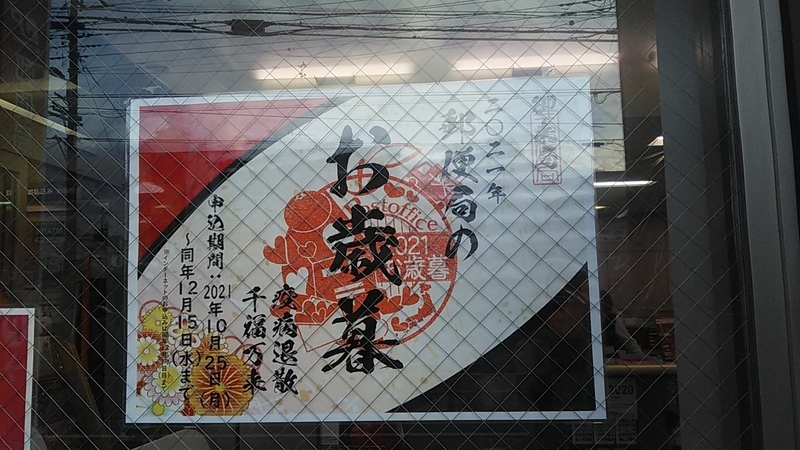 二〇二一年
郵便局の
お歳暮
Postoffice
2021
お歳暮
疫病退散
千福万来
申込期間:2021年10月25日(月)
~同年12月15日(水)まで
2020